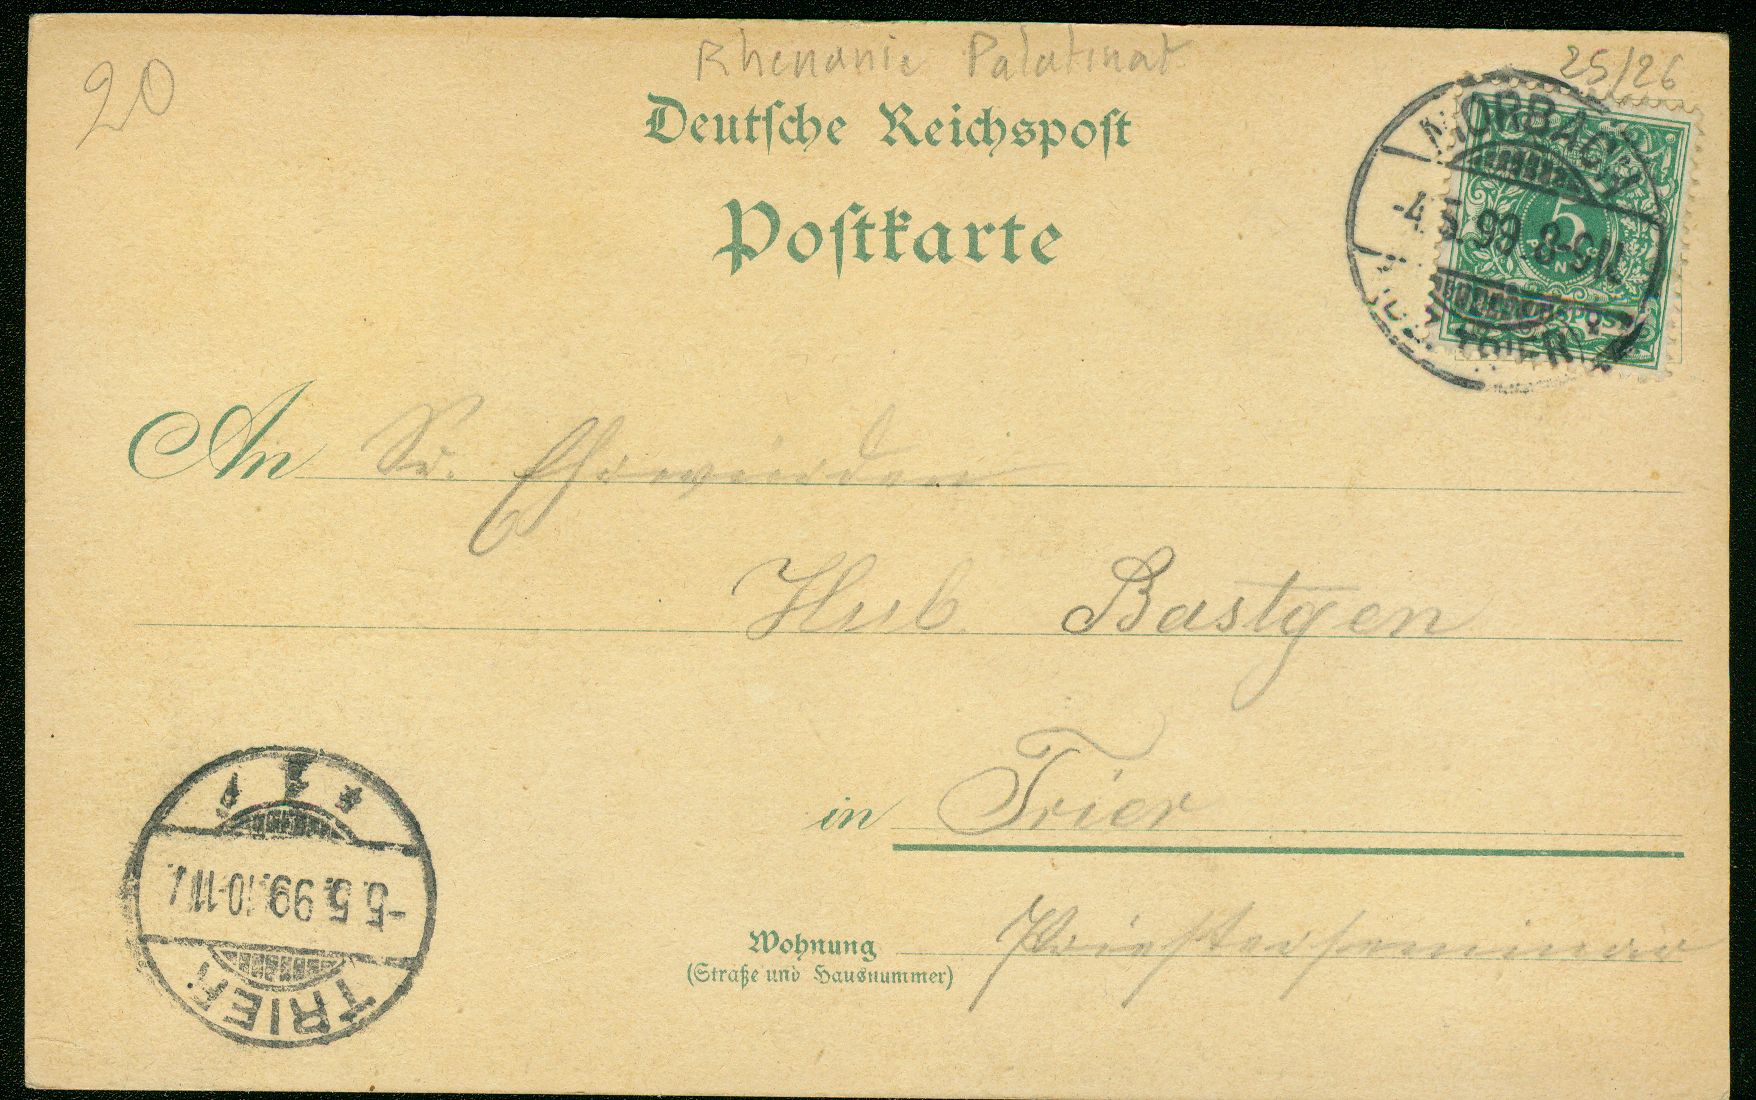 20
Rhenanie Palatinat
25/26
Deutsche Reichspost
Postkarte
MORBACH
-4.5.99.8-9N.
(BZ. TRIER)
5
PFENNIG
REICHSPOST
An Sr. Ehrwürden
Hub. Bastgen
in Trier
Wohnung
(Straße und Hausnummer)
Priesterseminar
TRIER
-5.5.99.10-11V.
* 1 *